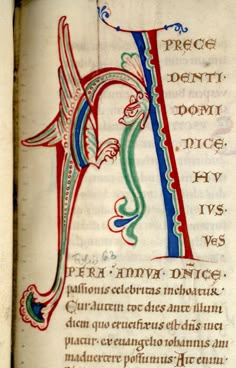 A
PRECE
DENTI.
DOMI
NICE.
HV
IVS.
VES
PERA. ANNVA DN̄ICE.
passionis celebritas inchoatur.
Cur autem tot dies ante illum
diem quo crucifixus est dn̄s inci
piatur. ex evangelio iohannis ani
madvertere possumus. Ait enim.